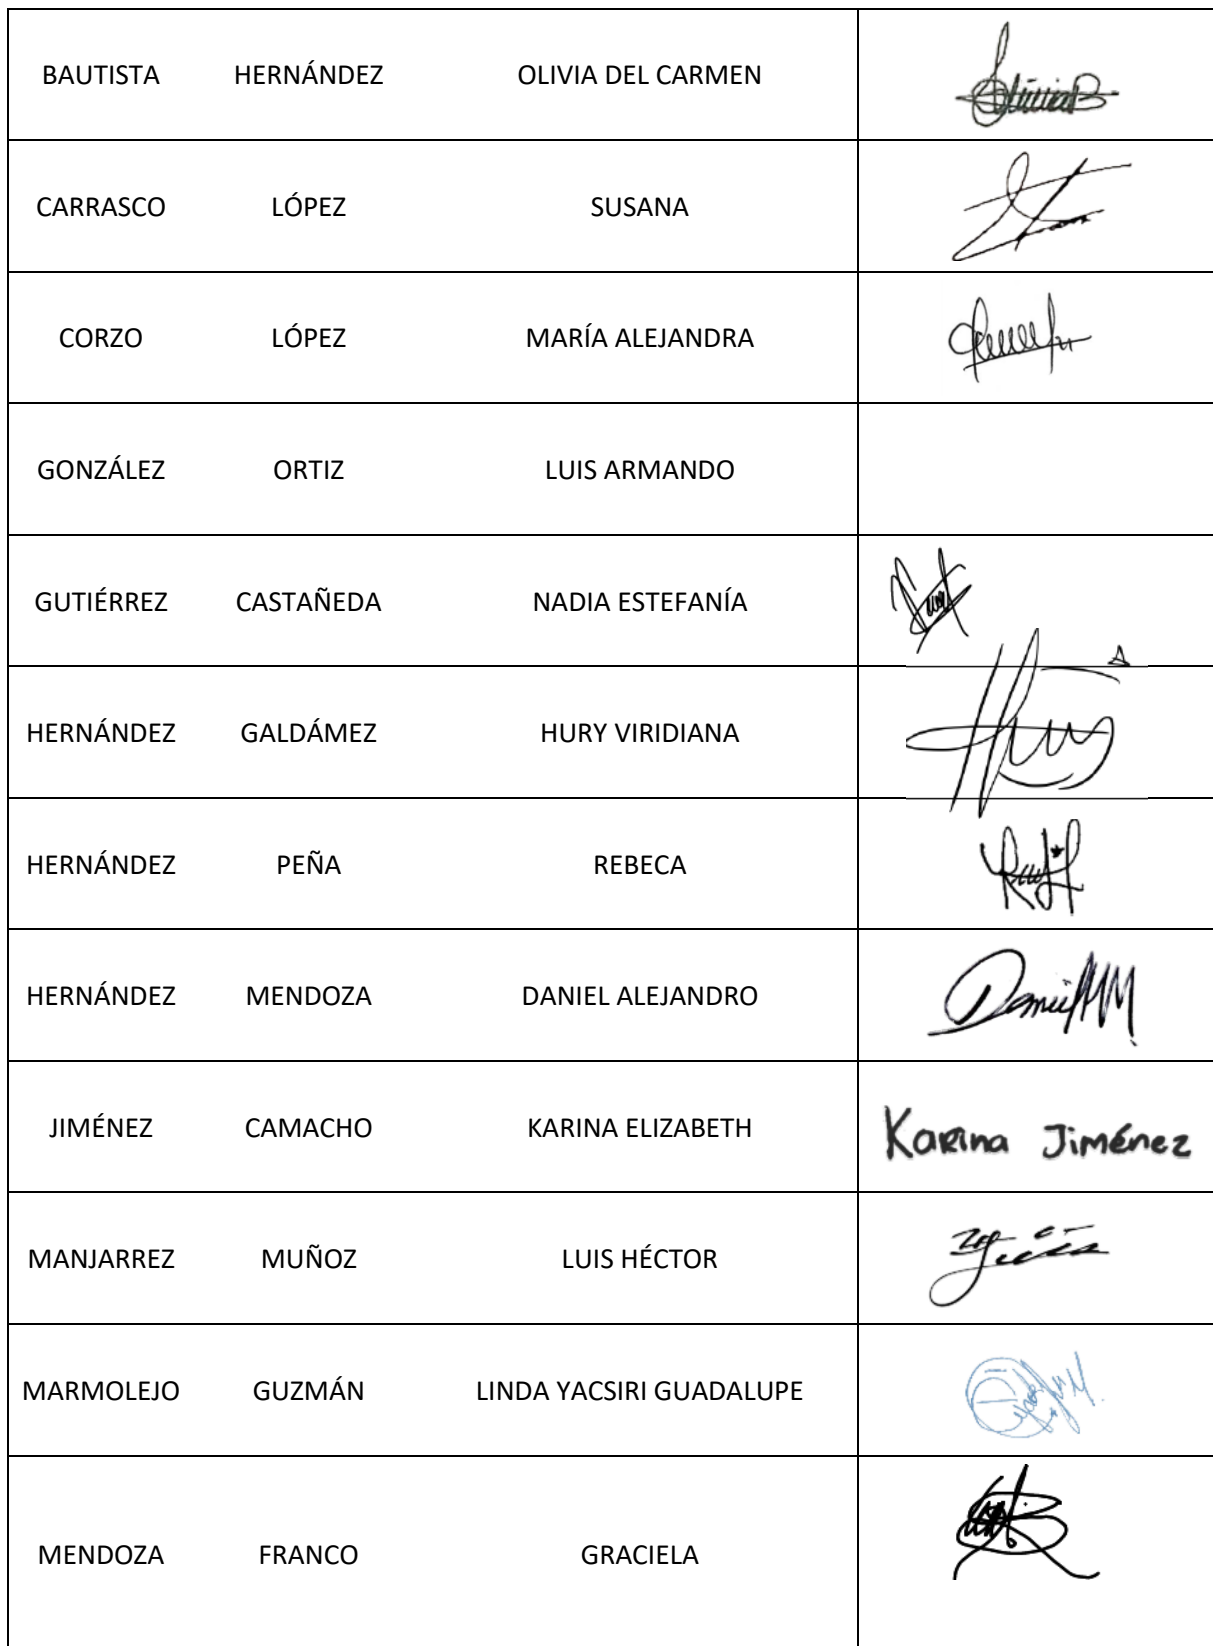 BAUTISTA HERNÁNDEZ OLIVIA DEL CARMEN
CARRASCO LÓPEZ SUSANA
CORZO LÓPEZ MARÍA ALEJANDRA
GONZÁLEZ ORTIZ LUIS ARMANDO
GUTIÉRREZ CASTAÑEDA NADIA ESTEFANÍA
HERNÁNDEZ GALDÁMEZ HURY VIRIDIANA
HERNÁNDEZ PEÑA REBECA
HERNÁNDEZ MENDOZA DANIEL ALEJANDRO
JIMÉNEZ CAMACHO KARINA ELIZABETH Karina Jiménez
MANJARREZ MUÑOZ LUIS HÉCTOR
MARMOLEJO GUZMÁN LINDA YACSIRI GUADALUPE
MENDOZA FRANCO GRACIELA